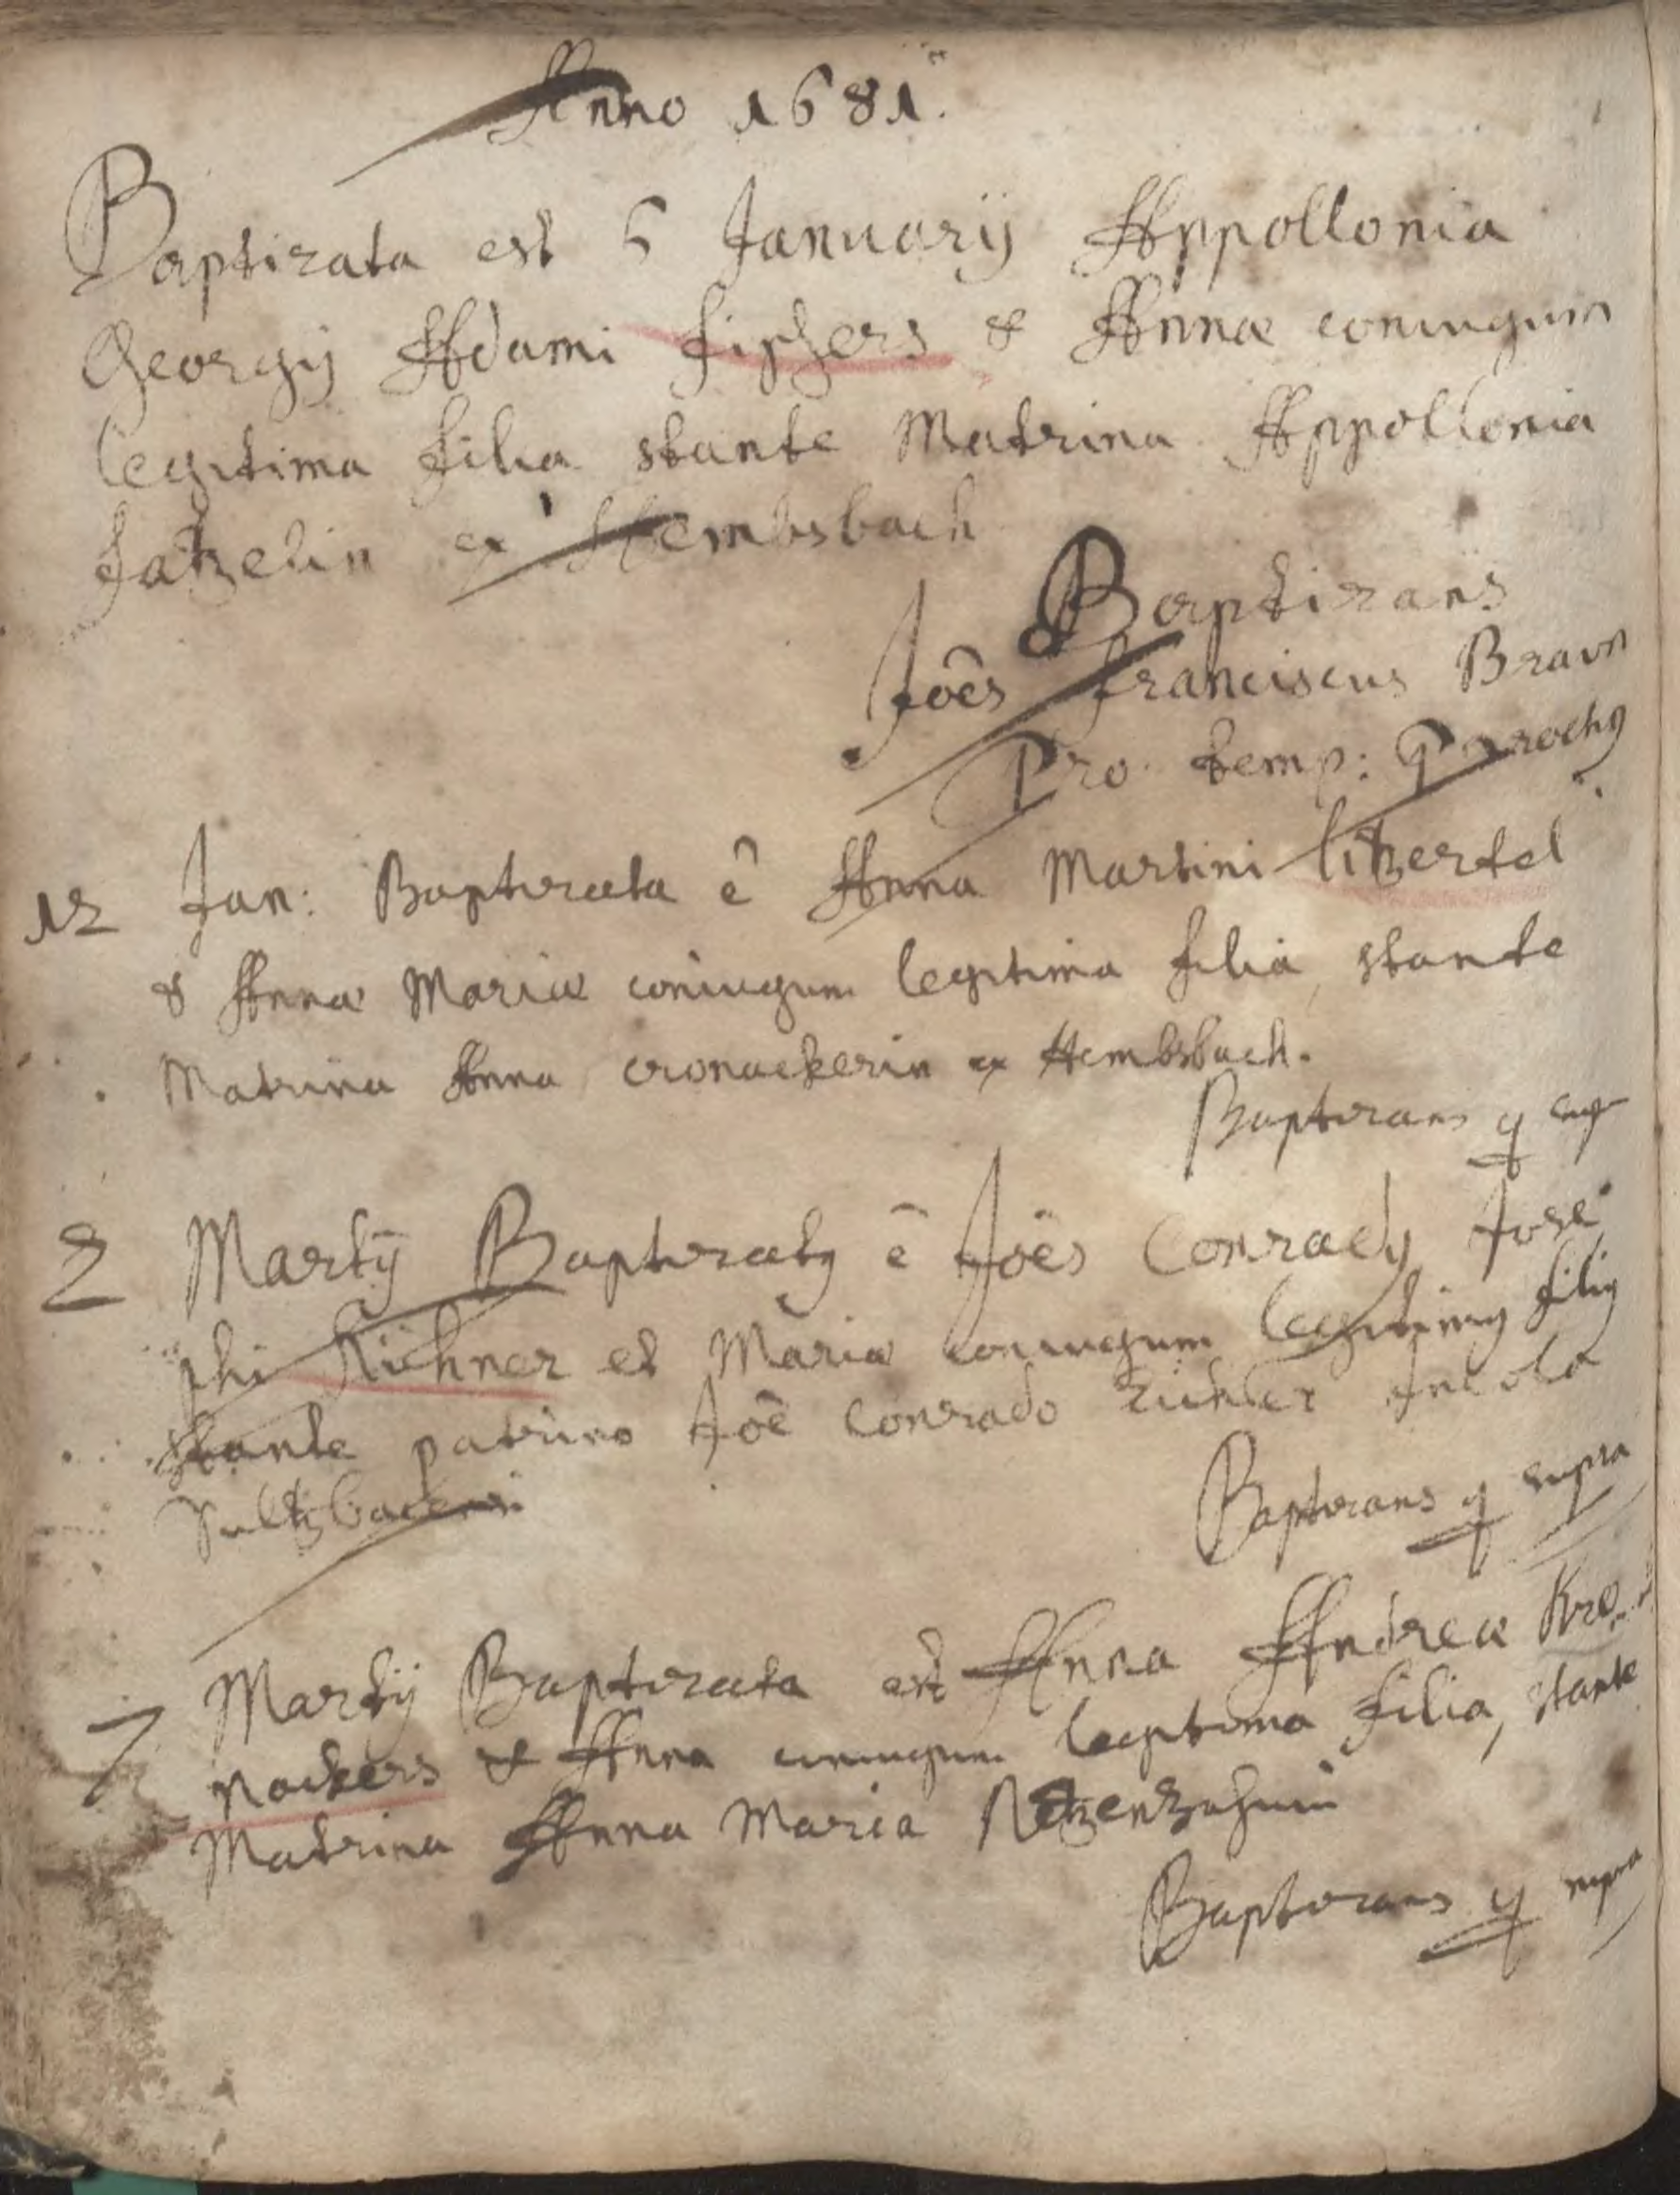 Anno 1681.
Baptizata est 6 Januarij Appollonia
Georgij Adami fischers & Annæ coniugum
legitima filia stante Matrina Appollonia
fatzelin ex Hembsbach
Baptizans
Joês franciscus Braun
Pro temp: Parochg
12 Jan: Baptizata ê Anna Martini litzertel
& Annæ Mariæ coniugum legitima filia, stante
Matrina Anna cronackerin ex Hembsbach.
Baptizans q
2 Martij Baptizatg ê Joês Conradg Jose
phi Kichner et Mariæ coniugum legitimg filig
stante patrino Joê Conrado incola
Sultzbacensi
Baptizans q supra
7 Martij Baptizata est Anna Andreæ Kro
nackers & Anna coniugum legitima filia, stante
Matrina Anna Maria
Baptizans q supra